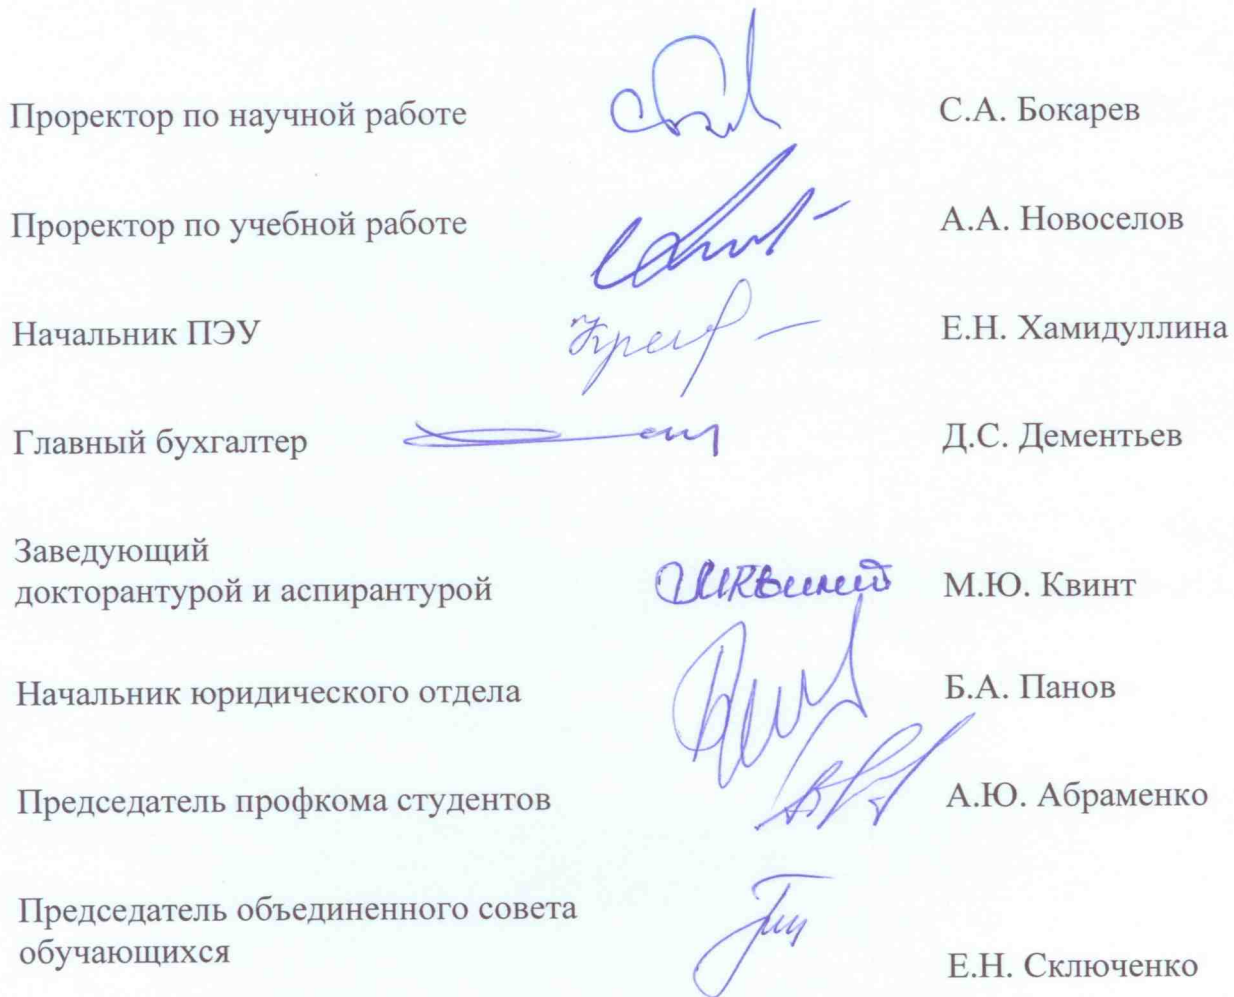 Проректор по научной работе С.А. Бокарев
Проректор по учебной работе А.А. Новоселов
Начальник ПЭУ Е.Н. Хамидуллина
Главный бухгалтер Д.С. Дементьев
Заведующий
докторантурой и аспирантурой М.Ю. Квинт
Начальник юридического отдела Б.А. Панов
Председатель профкома студентов А.Ю. Абраменко
Председатель объединенного совета
обучающихся Е.Н. Сключенко